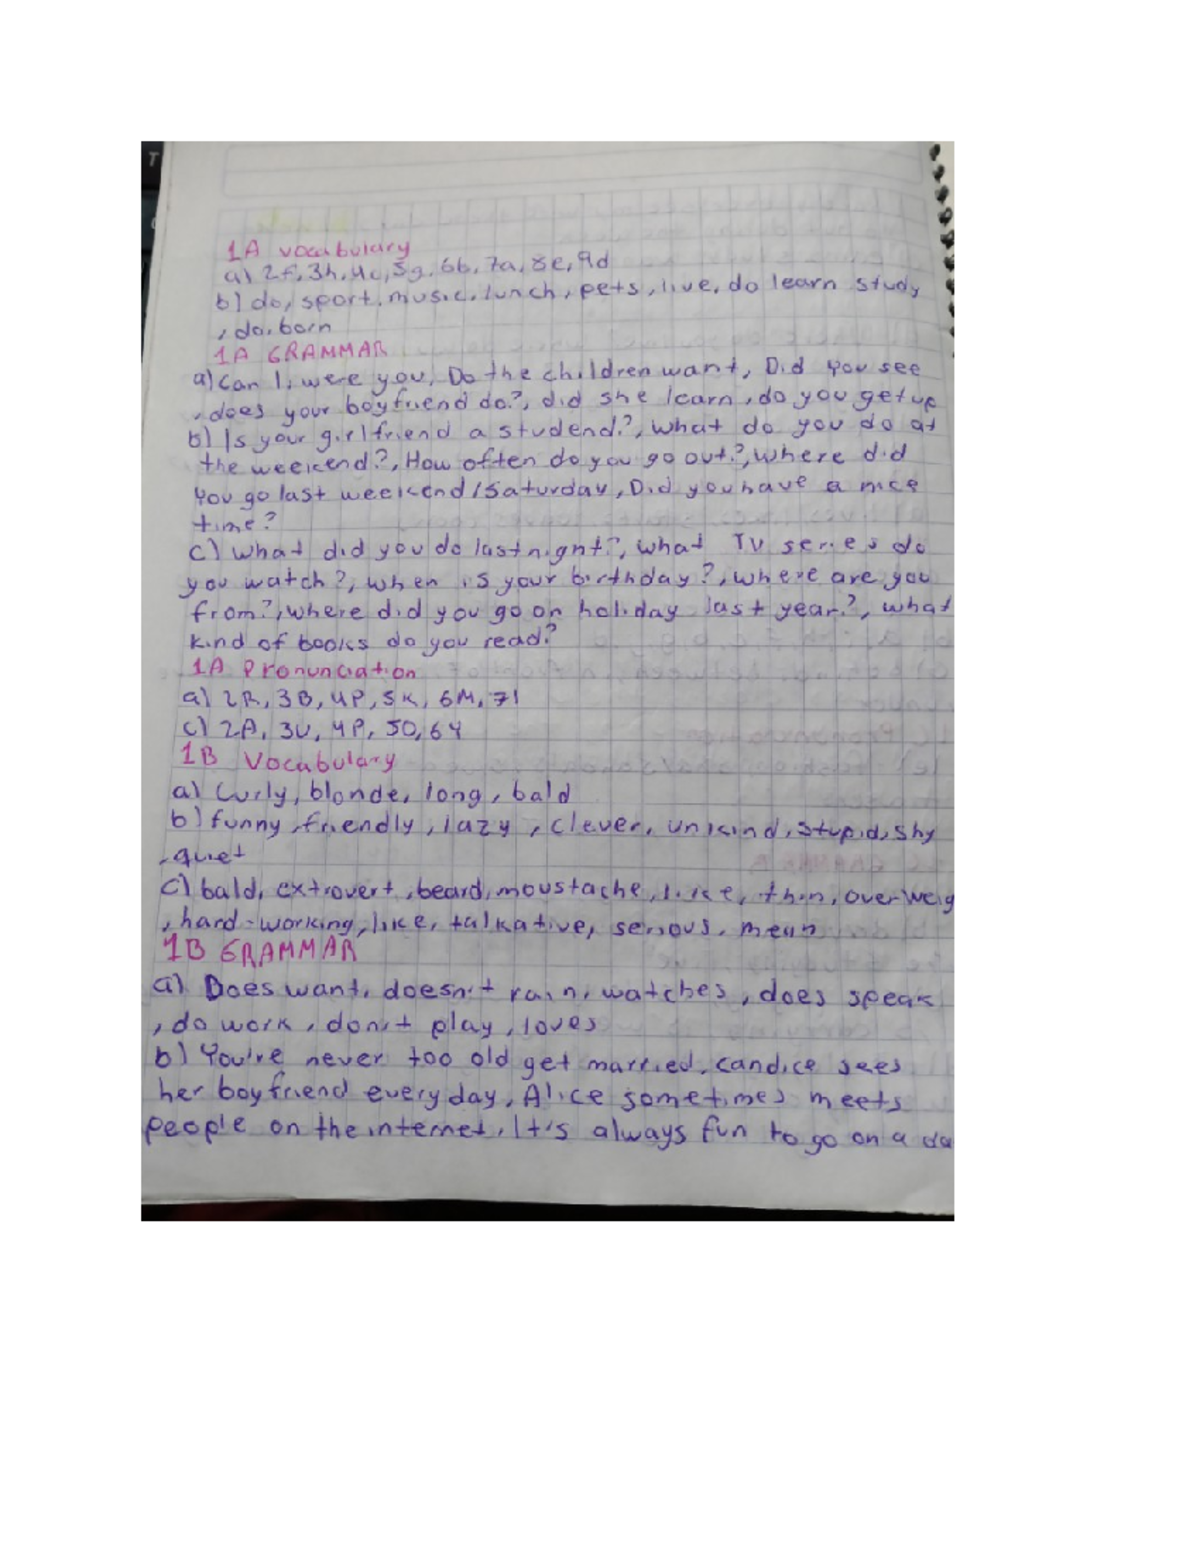 1A vocabulary
a) 2f, 3h, 4c, 5g, 6b, 7a, 8e, 9d
b) do, sport, music, lunch, pets, live, do learn study
, do, born
1A GRAMMAR
a) Can I, were you, Do the children want, Did you see
, does your boyfriend do?, did she learn, do you get up
b) Is your girlfriend a studend?, what do you do at
the weekend?, How often do you go out?, where did
you go last weekend/Saturday, Did you have a nice
time?
c) what did you do last night?, what TV series do
you watch?, when is your birthday?, where are you
from?, where did you go on holiday last year?, what
kind of books do you read?
1A Pronunciation
a) 2R, 3B, 4P, 5K, 6M, 71
c) 2A, 3U, 4P, 5O, 6Y
1B Vocabulary
a) Curly, blonde, long, bald
b) funny, friendly, lazy, clever, unkind, stupid, shy
, quiet
c) bald, extrovert, beard, moustache, like, thin, overweig
, hard-working, like, talkative, serious, mean
1B GRAMMAR
a) Does want, doesn't rain, watches, does speak
, do work, don't play, loves
b) You're never too old get married, candice sees
her boyfriend every day, Alice sometimes meets
people on the internet, It's always fun to go on a da